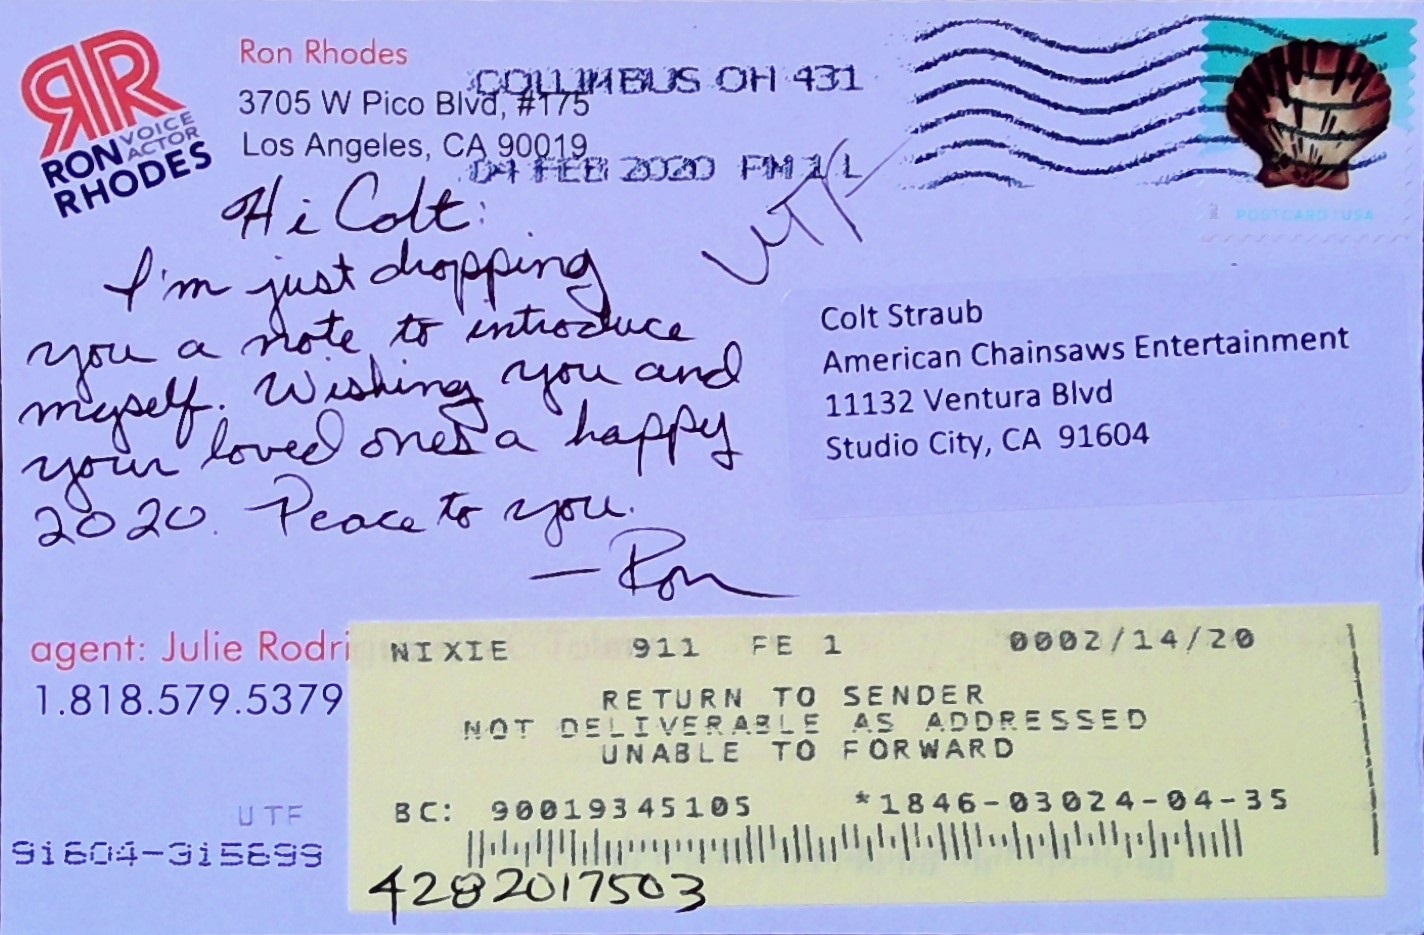 RR
RON VOICE ACTOR
RHODES
Ron Rhodes
3705 W Pico Blvd, #175
Los Angeles, CA 90019
COLUMBUS OH 431
04 FEB 2020 PM 2 L
POSTCARD USA
UTF
Hi Colt:
I'm just dropping
you a note to introduce
myself. Wishing you and
your loved ones a happy
2020. Peace to you.
— Ron
Colt Straub
American Chainsaws Entertainment
11132 Ventura Blvd
Studio City, CA 91604
agent: Julie Rodri
1.818.579.5379
NIXIE 911 FE 1 0002/14/20
RETURN TO SENDER
NOT DELIVERABLE AS ADDRESSED
UNABLE TO FORWARD
BC: 90019345105 *1846-03024-04-35
UTF
91604-315899
4282017503